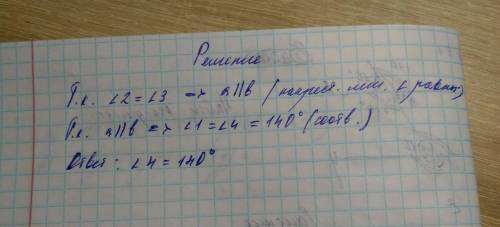 Решение
Т.к. ∠2 = ∠3 => a||b (накрест. леж. ∠ равны)
Т.к. a||b => ∠1 = ∠4 = 140° (соотв.)
Ответ: ∠4 = 140°